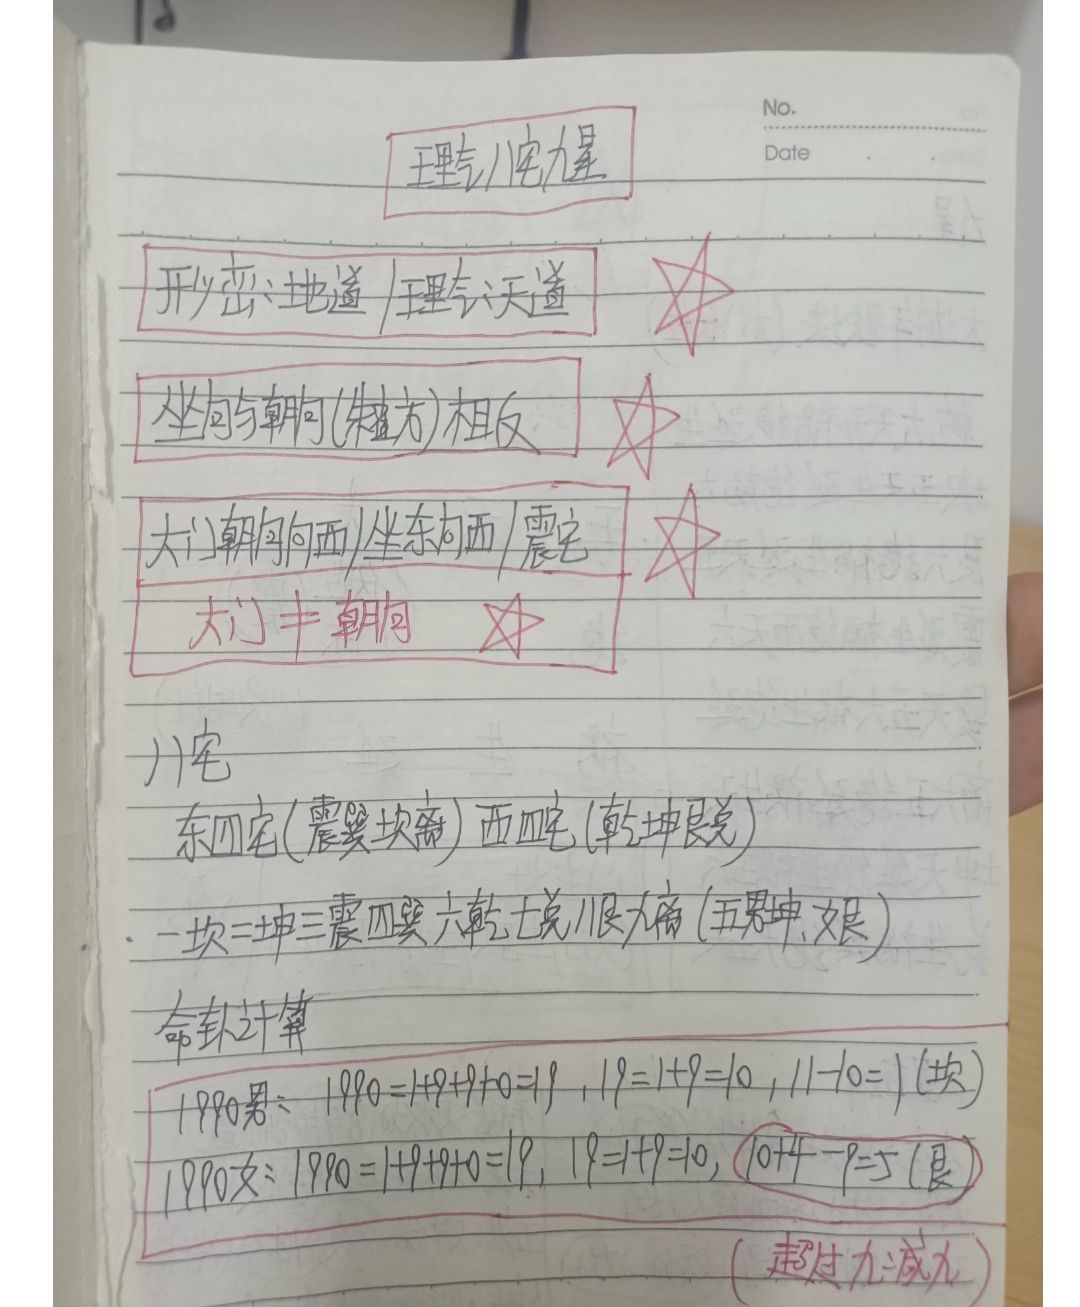 No.
Date
理气八宅九星
形峦:地道/理气:天道
坐向与朝向(朱雀方)相反
大门朝向向西/坐东向西/震宅
大门≠朝向
八宅
东四宅(震巽坎离)西四宅(乾坤艮兑)
一坎二坤三震四巽六乾七兑八艮九离(五男坤、女艮)
命卦计算
1990男: 1990=1+9+9+0=19,19=1+9=10,11-10=1(坎)
1990女:1990=1+9+9+0=19, 19=1+9=10, 10+4-9=5(艮)
(超过九:减九)